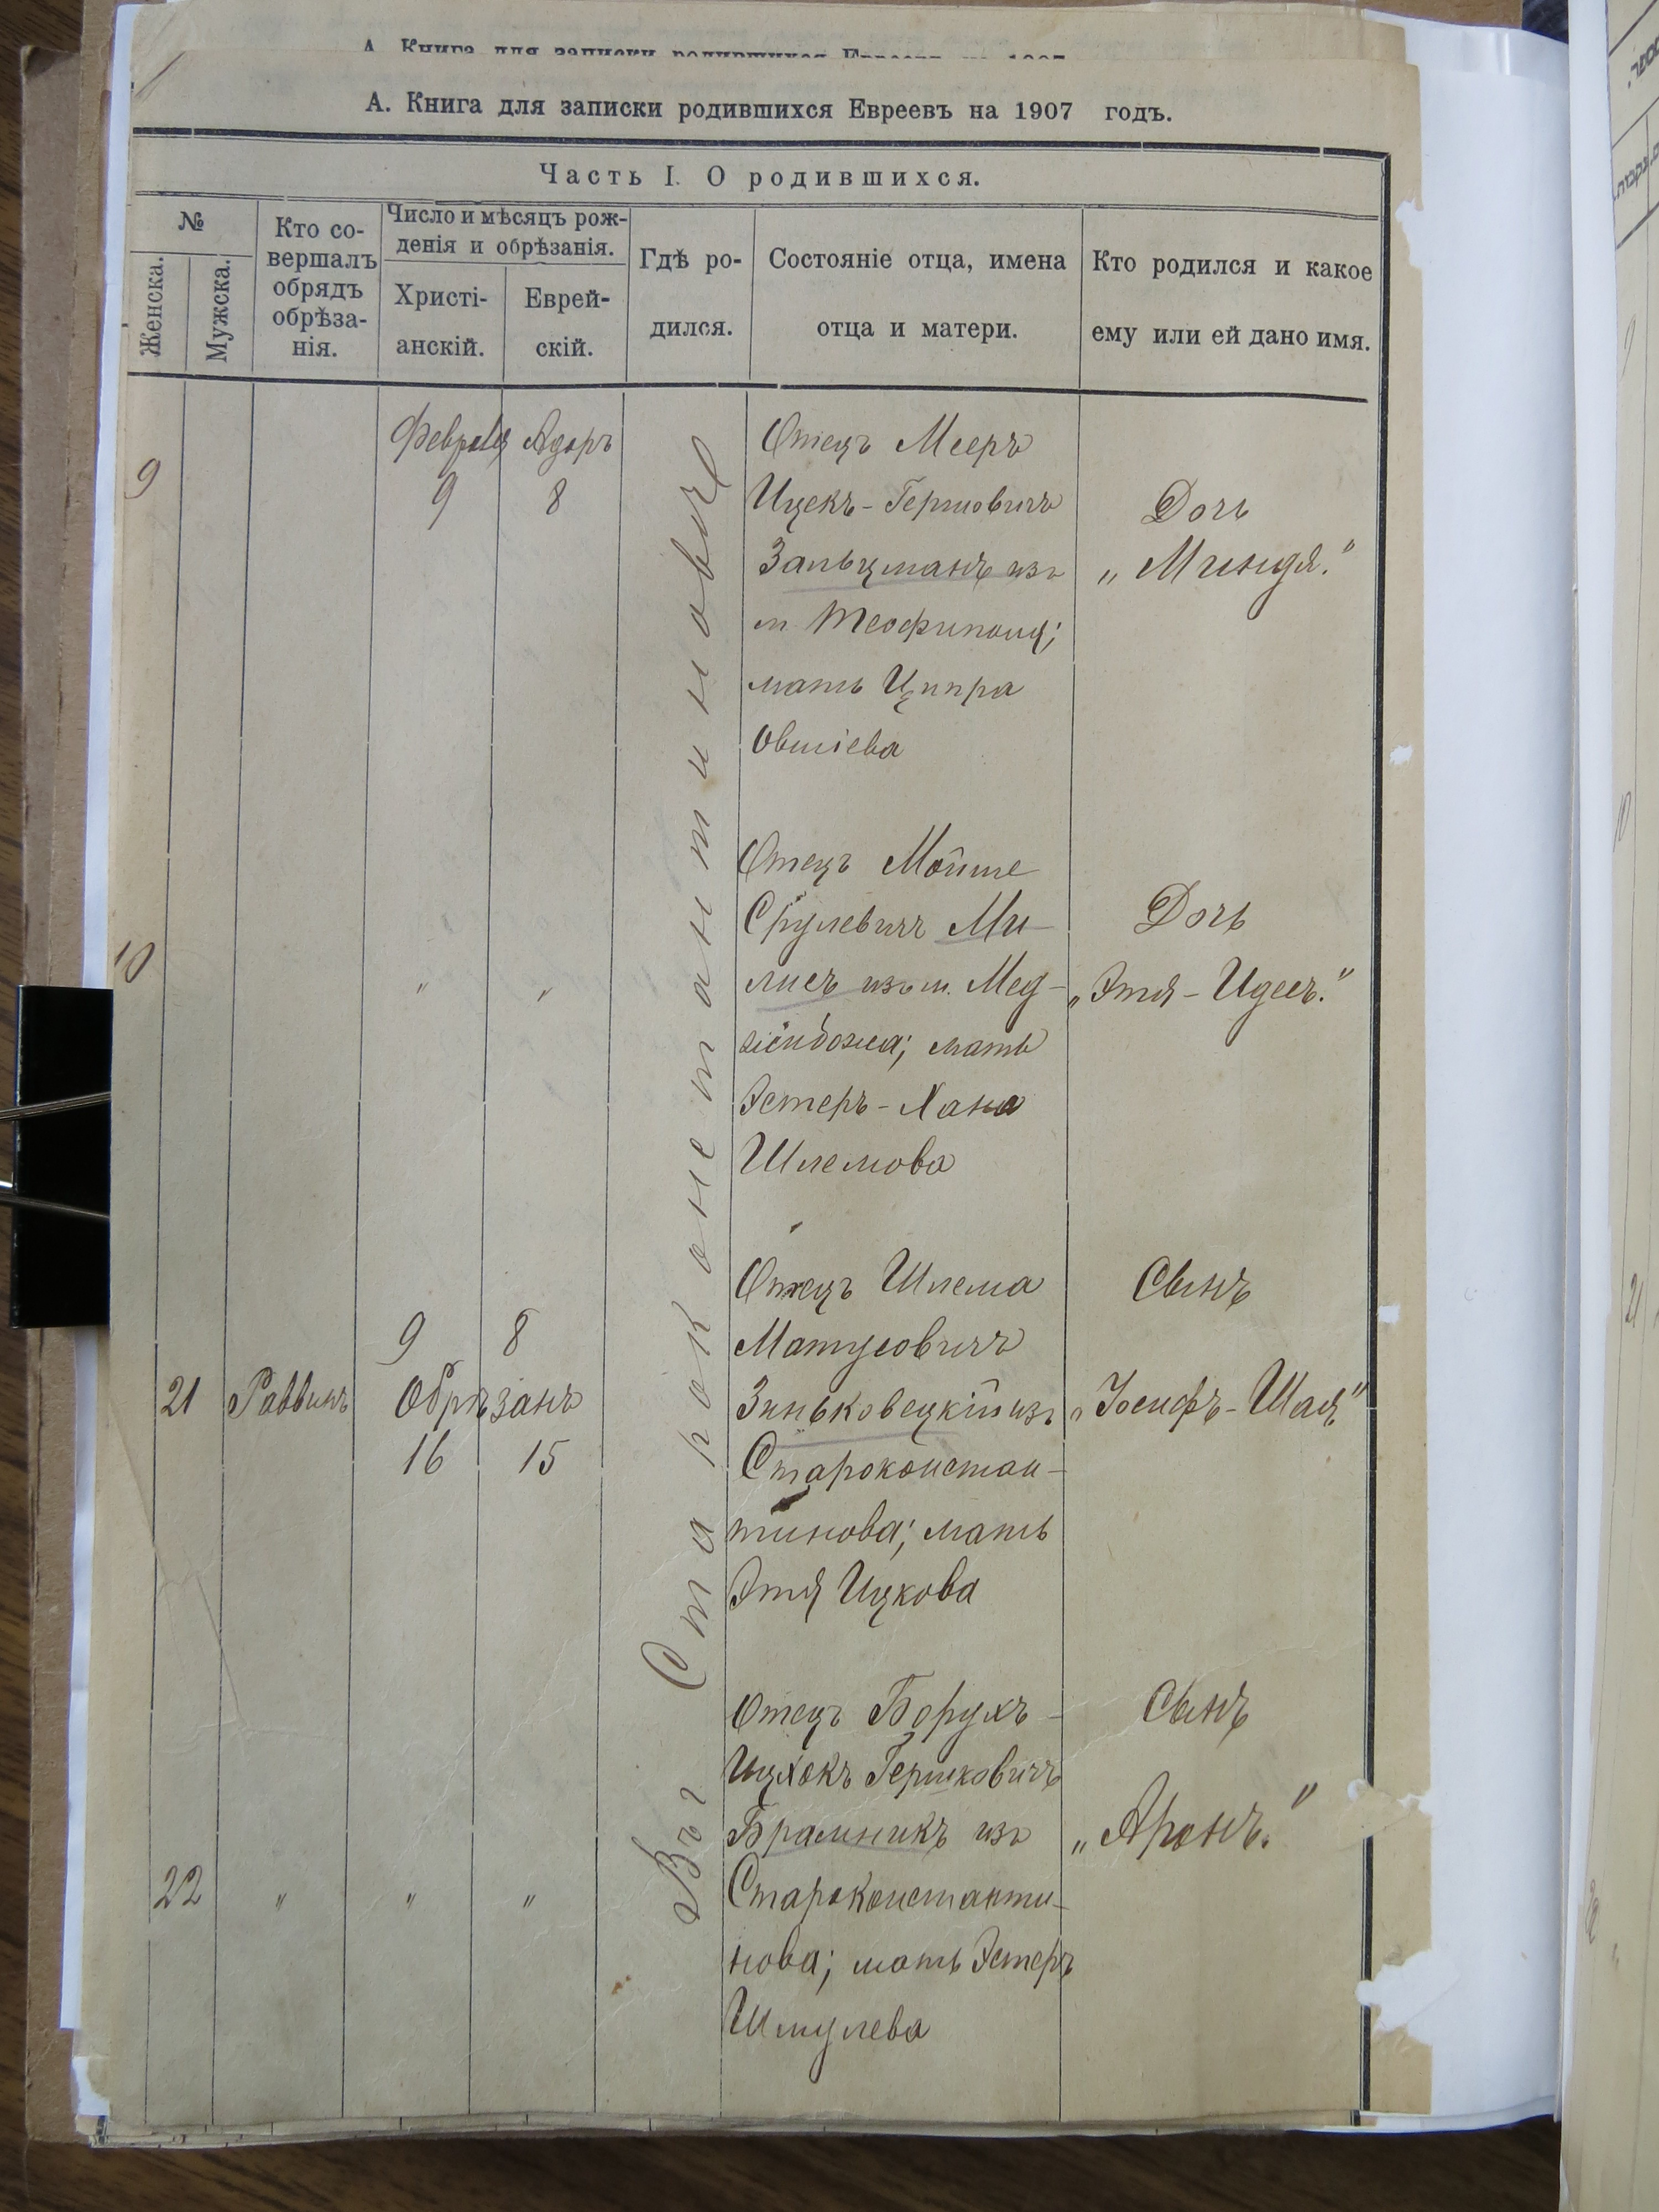 А. Книга для записки родившихся Евреевъ на 1907
А. Книга для записки родившихся Евреевъ на 1907 годъ.
Часть I. О родившихся.
№
Женска.
Мужска.
Кто со-
вершалъ
обрядъ
обрѣза-
нія.
Число и мѣсяцъ рож-
денія и обрѣзанія.
Христі-
анскій.
Еврей-
скій.
Гдѣ ро-
дился.
Состояніе отца, имена
отца и матери.
Кто родился и какое
ему или ей дано имя.
Въ г Староконстантиновѣ
Февраля Адоръ
9
9 8
Отецъ Мееръ
Ицекъ-Гершовичъ
Зальцманъ изъ
м Теофиполя;
мать Ципра
Овшіева
Дочь
„Миндя."
10
" "
Отецъ Мойше
Срулевичъ Ми-
лисъ изъ м. Мед-
жибожа; мать
Эстеръ-Хана
Шлемова
Дочь
„Этя-Идесъ."
21 Раввинъ
9 8
Обрѣзанъ
16 15
Отецъ Шлема
Матусовичъ
Зиньковецкій изъ
Староконстан-
тинова; мать
Этя Ицкова
Сынъ
„Іосифъ-Шая"
22 " " "
Отецъ Борухъ-
Ицхокъ Гершковичъ
Брамникъ изъ
Староконстанти-
нова; мать Эстеръ
Шмулева
Сынъ
„Аронъ."